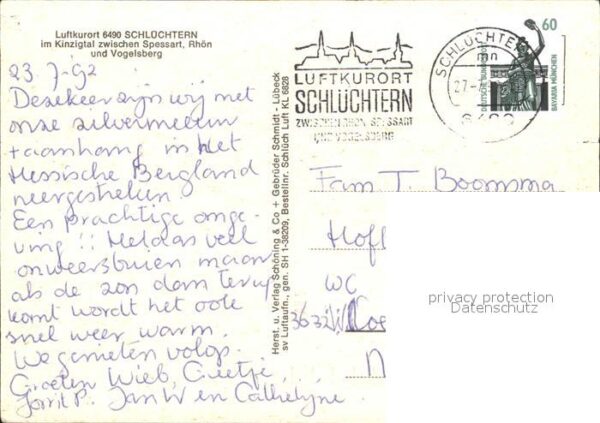 Luftkurort 6490 SCHLÜCHTERN
im Kinzigtal zwischen Spessart, Rhön
und Vogelsberg
23-7-92
Deze keer zijn wij met
onze zilvermeeuw
+ aanhang in het
Hessische Bergland
neergestreken.
Een prachtige omge-
ving!! Helaas veel
onweersbuien maar
als de zon dan terug
komt wordt het ook
snel weer warm.
We genieten volop.
Groeten Wieb, Geetje,
Jorrit P. Jan W en Cathelijne.
Herst. u. Verlag Schöning & Co + Gebrüder Schmidt - Lübeck
sv Luftaufn., gen. SH 1-38209, Bestellnr. Schlüch Luft KL 6828
LUFTKURORT
SCHLÜCHTERN
ZWISCHEN RHÖN, SPESSART
UND VOGELSBERG
SCHLÜCHTERN
mn
27.-7
6490
60
DEUTSCHE BUNDESPOST
BAVARIA MÜNCHEN
Fam T. Boomsma
Hof
WC
3632
N
privacy protection
Datenschutz